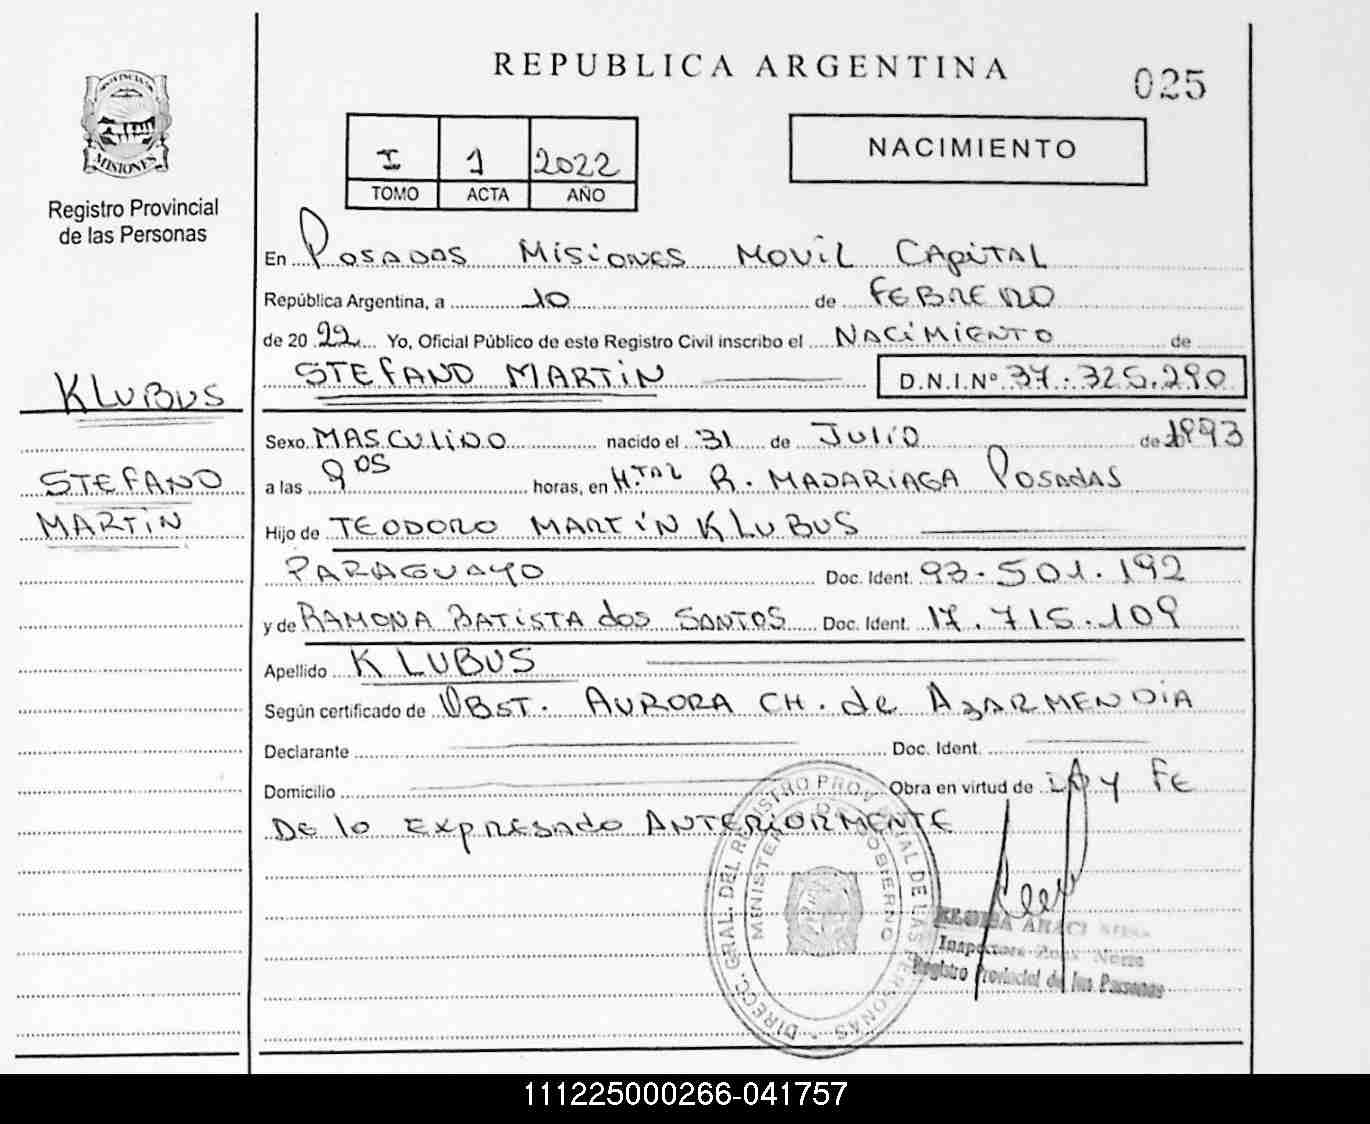 REPUBLICA ARGENTINA
025
PROVINCIA
MISIONES
Registro Provincial
de las Personas
I 1 2022
TOMO ACTA AÑO
NACIMIENTO
En Posadas Misiones Movil Capital
República Argentina, a 10 de FEBRERO
de 2022 Yo, Oficial Público de este Registro Civil inscribo el NACIMIENTO de
STEFANO MARTIN D.N.I.Nº 37.325.290
KLUBUS
STEFANO
MARTIN
Sexo MASCULINO nacido el 31 de JULIO de 1993
a las 9 os horas, en H.TAL R. MADARIAGA POSADAS
Hijo de TEODORO MARTIN KLUBUS
PARAGUAYO Doc. Ident. 93.501.192
y de RAMONA BATISTA dos SANTOS Doc. Ident. 17.715.109
Apellido KLUBUS
Según certificado de OBST. AURORA CH. de AZARMENDIA
Declarante Doc. Ident.
Domicilio Obra en virtud de LA y FE
De lo EXPRESADO ANTERIORMENTE
DIRECC. GRAL. DEL REGISTRO PROVINCIAL DE LAS PERSONAS
MINISTERIO DE GOBIERNO
ARACI
Inspectora Zona
Registro Provincial de las Personas
111225000266-041757